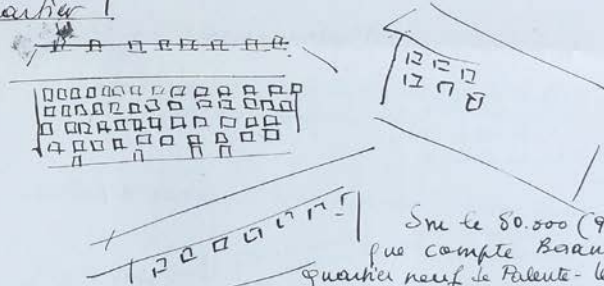 quartier !
Sur le 80.000 (9
que compte Besan
quartier neuf de Palente - le